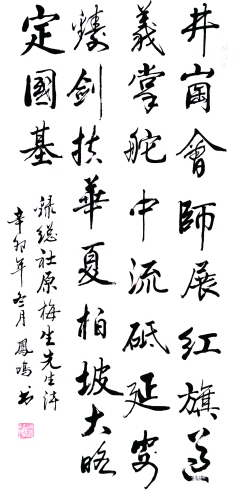 井崗會師展紅旗遵
義掌舵中流砥延安
鑄劍扶華夏柏坡大略
定國基
錄總社原梅生先生詩
辛卯年冬月鳳鳴书